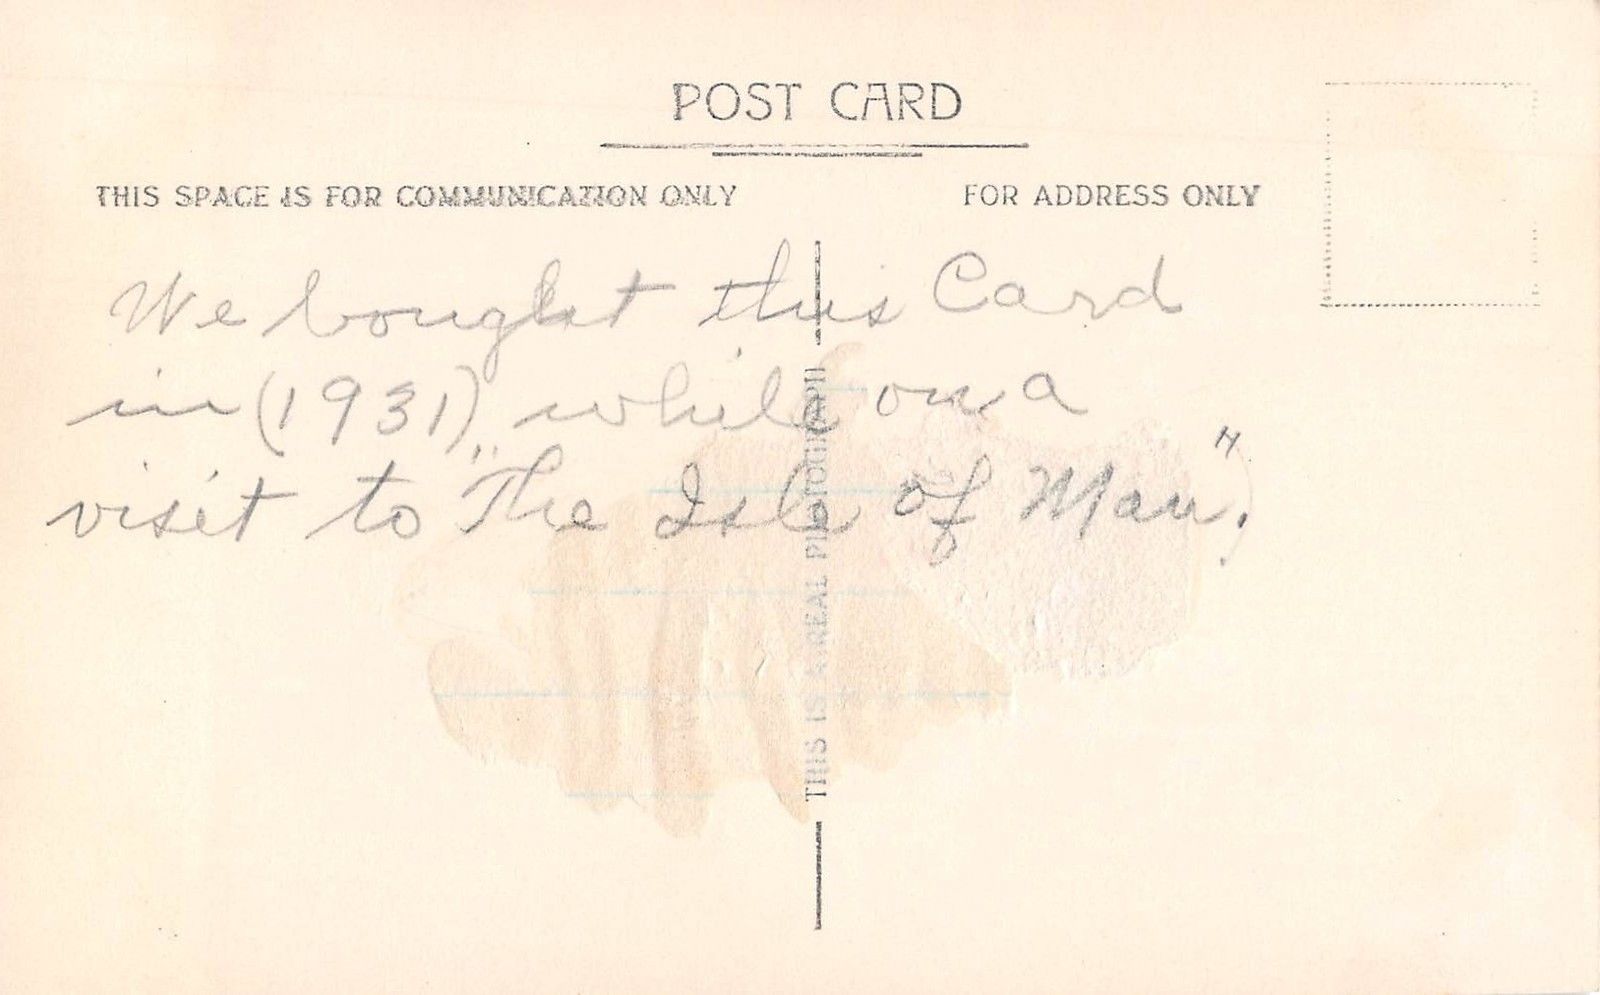 POST CARD
THIS SPACE IS FOR COMMUNICATION ONLY
FOR ADDRESS ONLY
We bought this Card
in (1931) while on a
visit to "The Isle of Man".
THIS IS A REAL PHOTOGRAPH